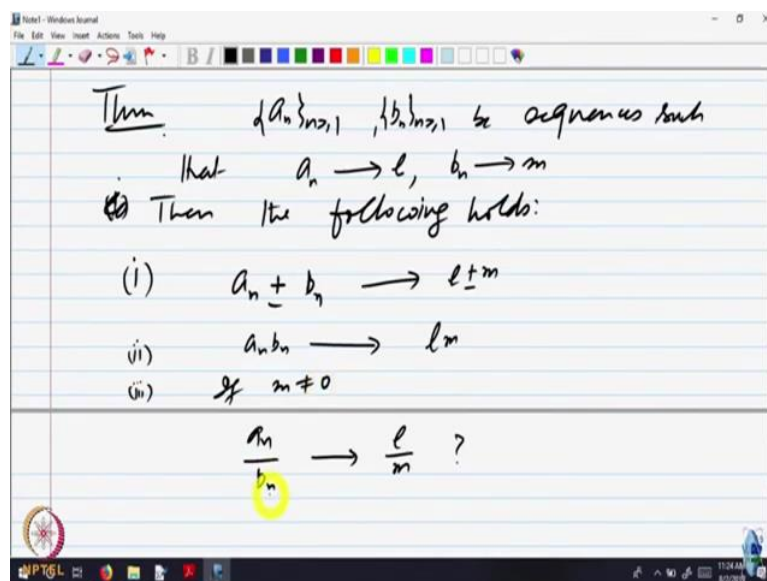 Note1 - Windows Journal
File Edit View Insert Actions Tools Help
Thm {a_n}_{n≥1}, {b_n}_{n≥1} be sequences such
that a_n → l, b_n → m
Then the following holds:
(i) a_n ± b_n → l ± m
(ii) a_n b_n → lm
(iii) If m ≠ 0
a_n/b_n → l/m ?
NPTEL
11:24 AM